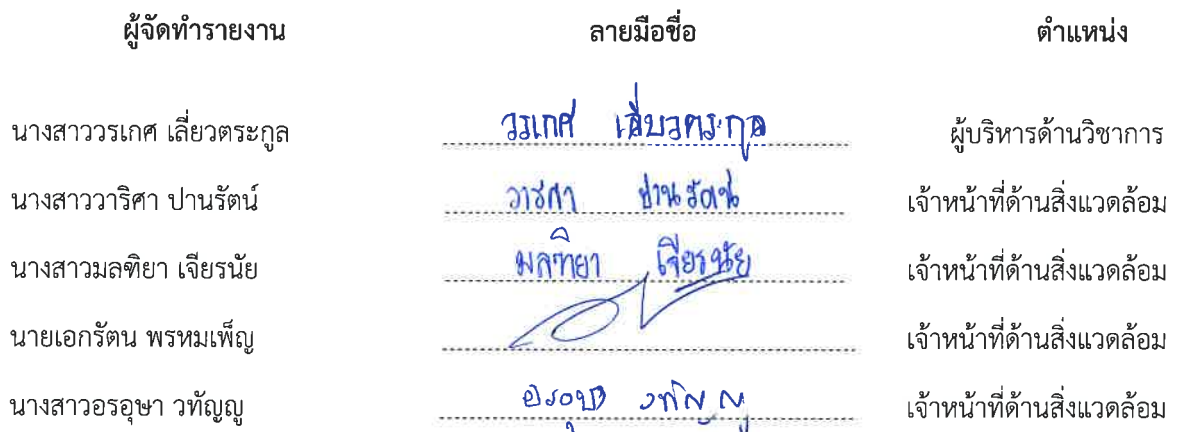 ผู้จัดทำรายงาน ลายมือชื่อ ตำแหน่ง
นางสาววรเกศ เลี่ยวตระกูล วรเกศ เลี่ยวตระกูล ผู้บริหารด้านวิชาการ
นางสาววาริศา ปานรัตน์ วาริศา ปานรัตน์ เจ้าหน้าที่ด้านสิ่งแวดล้อม
นางสาวมลฑิยา เจียรนัย มลฑิยา เจียรนัย เจ้าหน้าที่ด้านสิ่งแวดล้อม
นายเอกรัตน พรหมเพ็ญ เจ้าหน้าที่ด้านสิ่งแวดล้อม
นางสาวอรอุษา วทัญญู อรอุษา วทัญญู เจ้าหน้าที่ด้านสิ่งแวดล้อม